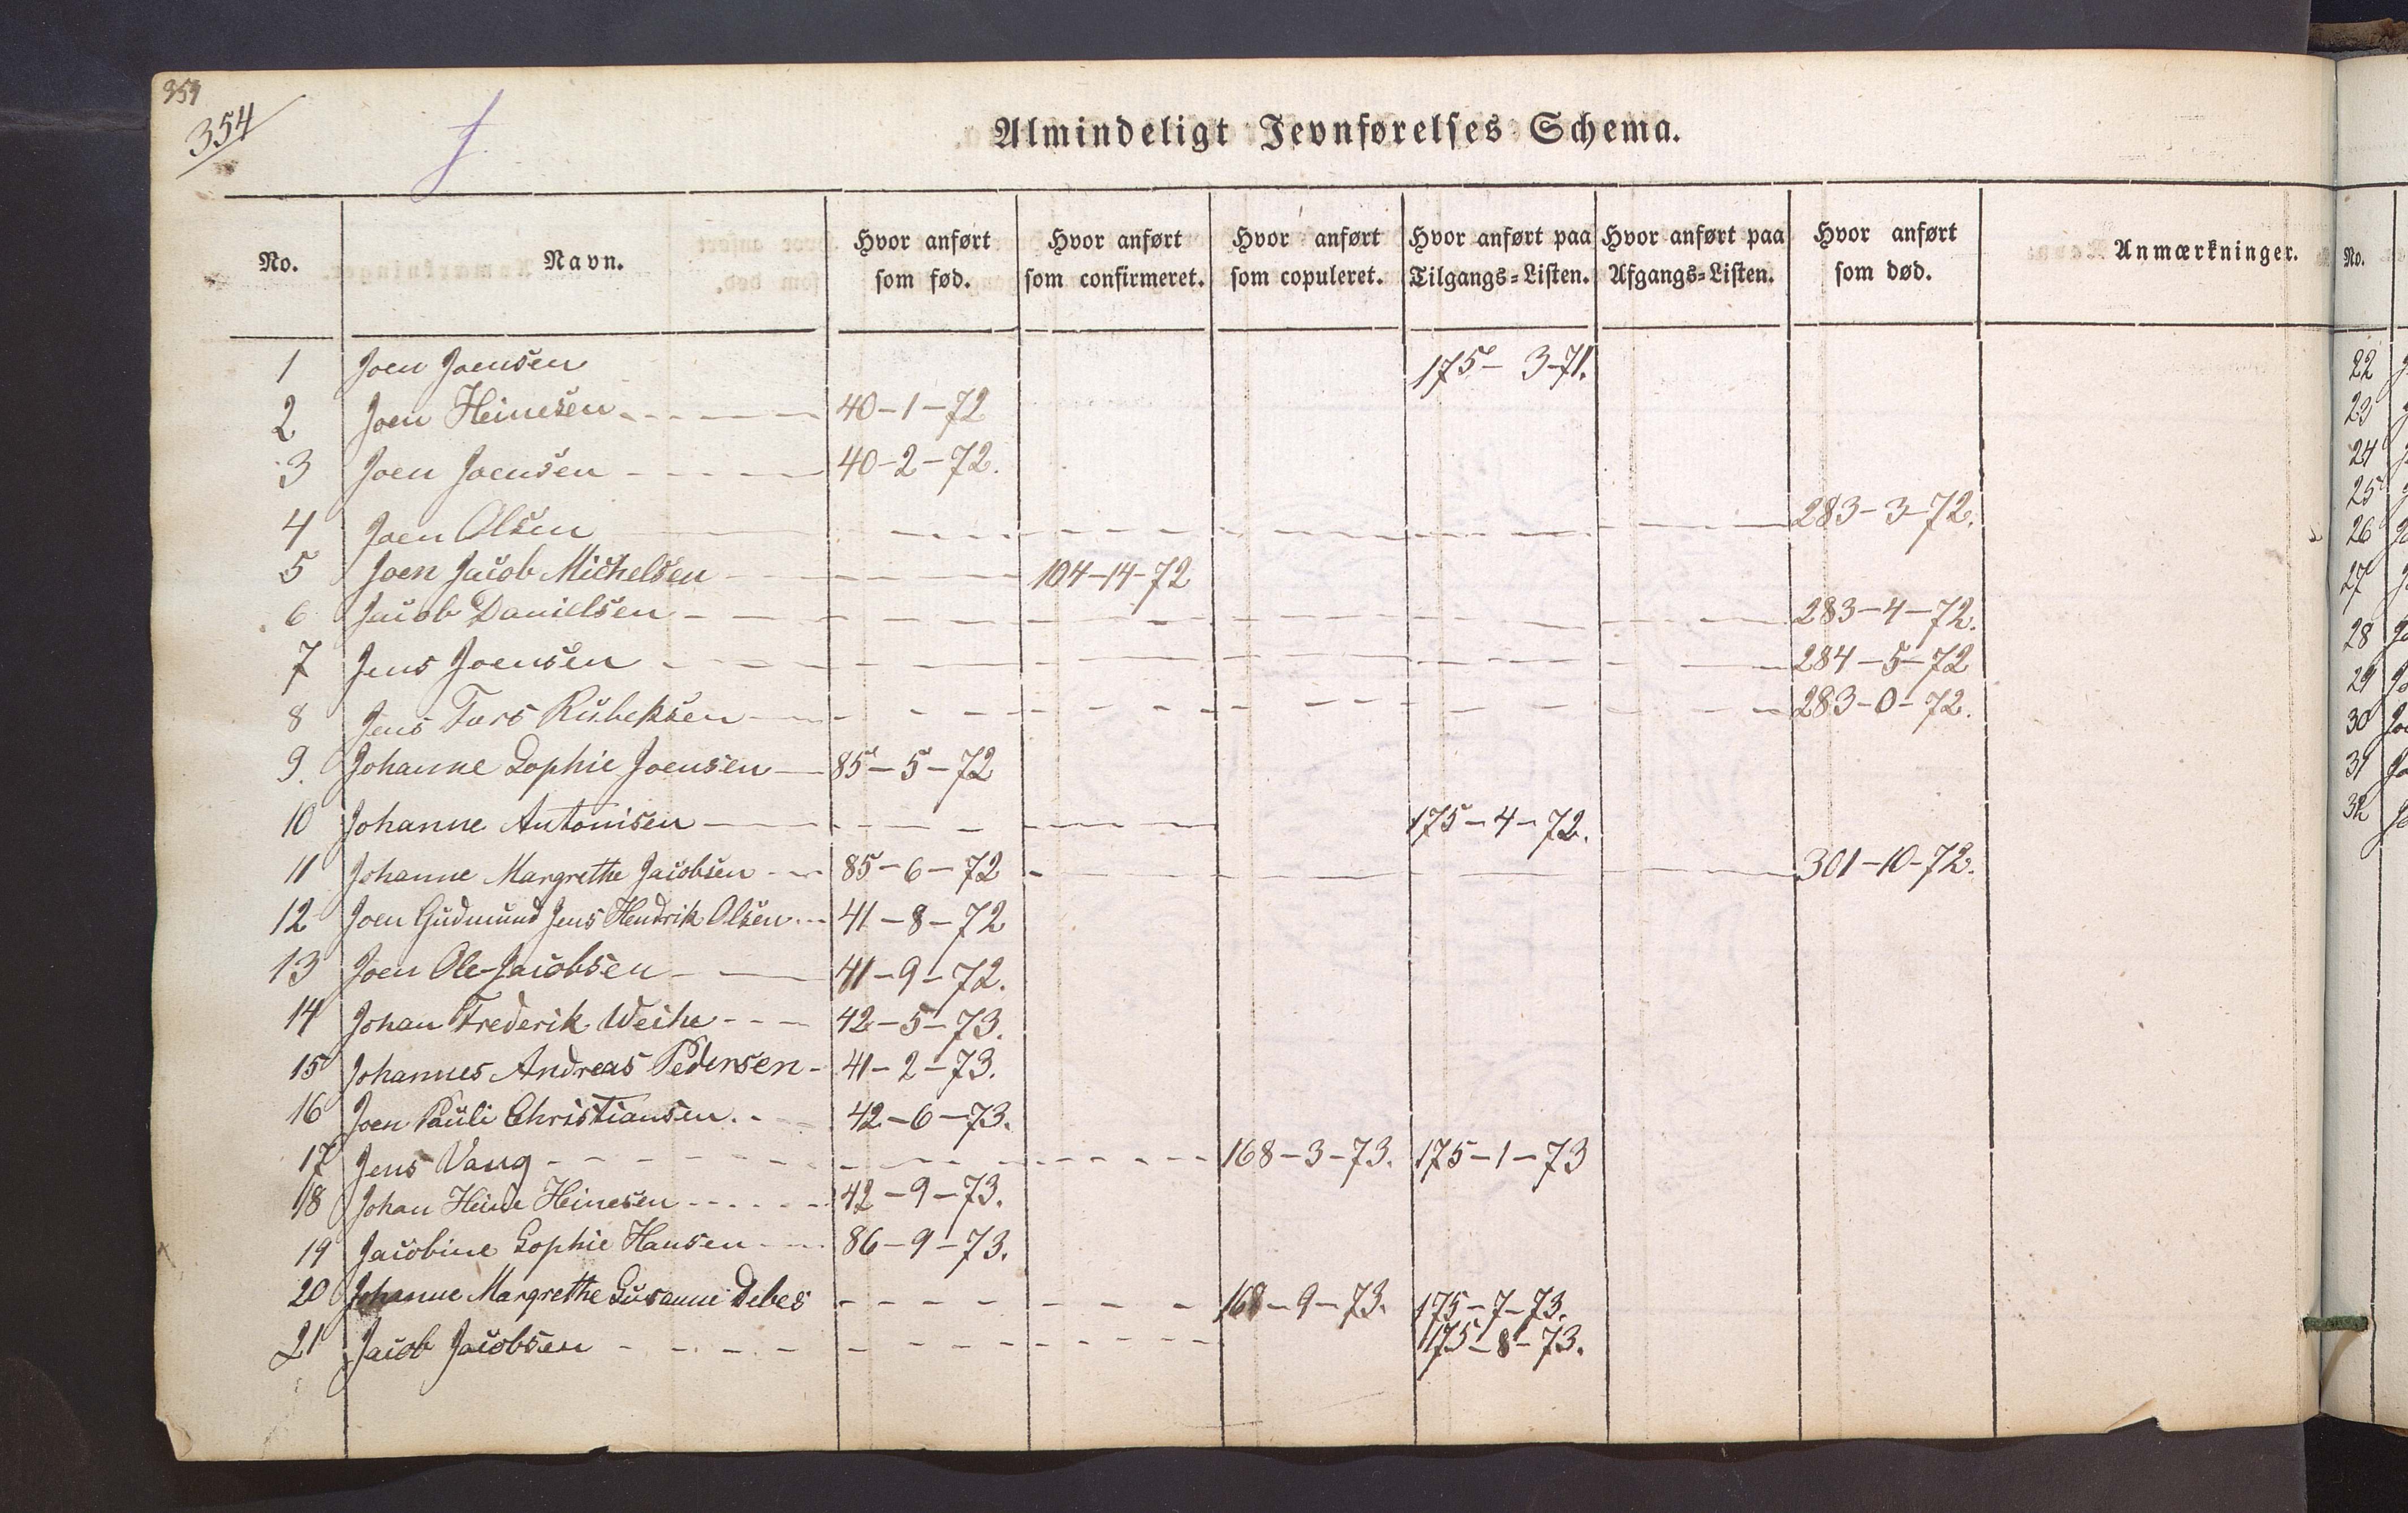 354
354
J
Almindeligt Jevnførelses Schema.
No. Navn. Hvor anført som fød. Hvor anført som confirmeret. Hvor anført som copuleret. Hvor anført paa Tilgangs=Listen. Hvor anført paa Afgangs=Listen. Hvor anført som død. Anmærkninger.
1 Joen Joensen 175- 3-71.
2 Joen Heinesen 40-1-72
3 Joen Joensen 40-2-72.
4 Joen Olsen 283-3-72.
5 Joen Jacob Michelsen 104-14-72
6 Jacob Danielsen 283-4-72.
7 Jens Joensen 284-5-72
8 Jens Rubeksen 283-0-72.
9. Johanne Sophie Joensen 85-5-72
10 Johanne Antonisen 175-4-72.
11 Johanne Margrethe Jacobsen 85-6-72 301-10-72.
12 Joen Gudmund Jens Hendrik Olsen 41-8-72
13 Joen Ole Jacobsen 41-9-72.
14 Johan Frederik Weihe 42-5-73.
15 Johannes Andreas Pedersen 41-2-73.
16 Joen Pauli Christiansen 42-6-73.
17 Jens Vang 168-3-73. 175-1-73
18 Johan Heine Heinesen 42-9-73.
19 Jacobine Sophie Hansen 86-9-73.
20 Johanne Margrethe Susanne Debes 168-9-73. 175-7-73.
21 Jacob Jacobsen 175-8-73.
No.
22
23
24
25
26
27
28
29
30
31
32